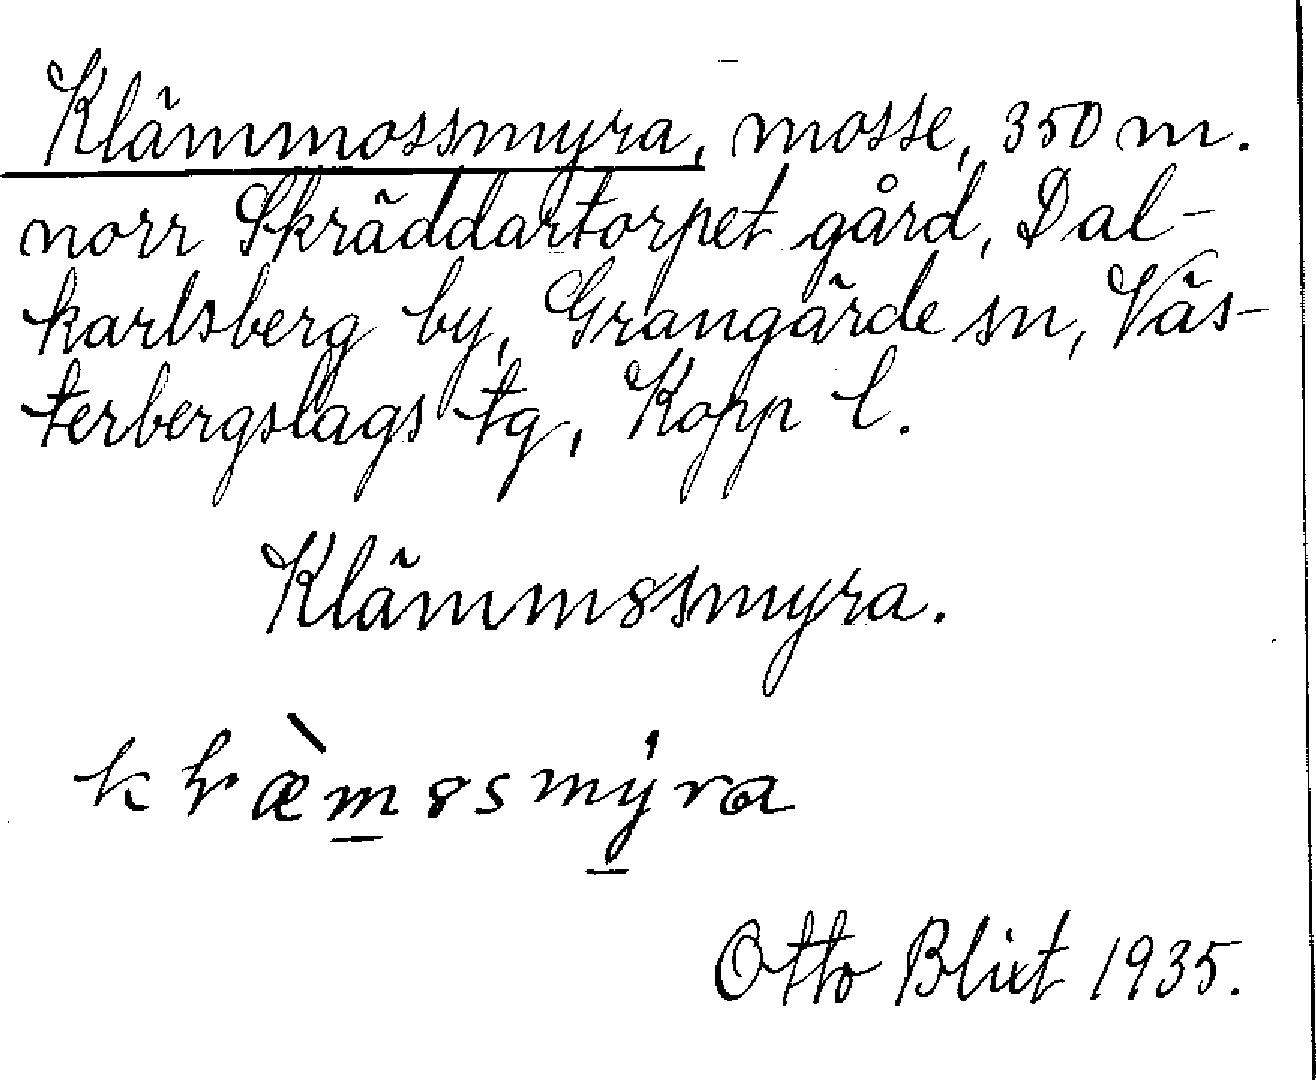 Klämmossmyra, mosse, 350 m.
norr Skräddartorpet gård, Dal-
karlsberg by, Grangärde sn, Väs-
terbergslags tg, Kopp l.
Klämm8ssmyra.
Otto Blixt 1935.